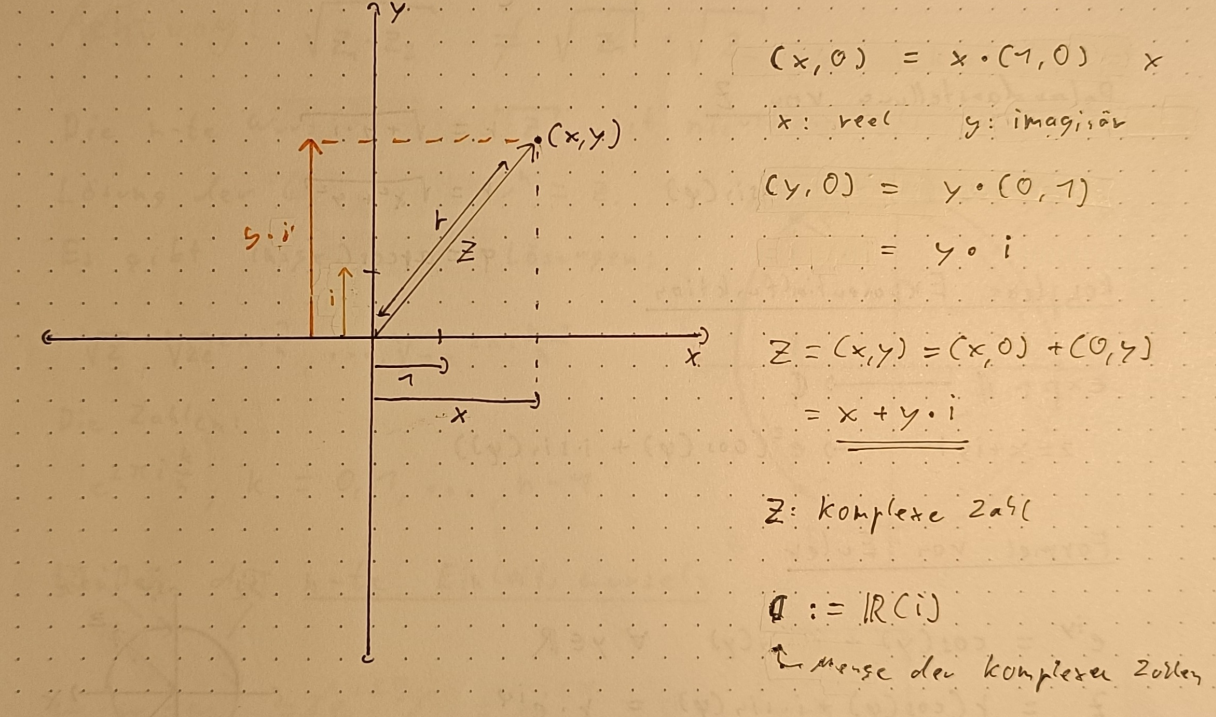 y
(x,y)
r
y·i
z
i
x
1
x
(x,0) = x·(1,0) x
x: reel y: imaginär
(y,0) = y·(0,1)
= y·i
z = (x,y) = (x,0) + (0,y)
= x + y·i
z: komplexe Zahl
ℂ := ℝ(i)
Menge der komplexen Zahlen